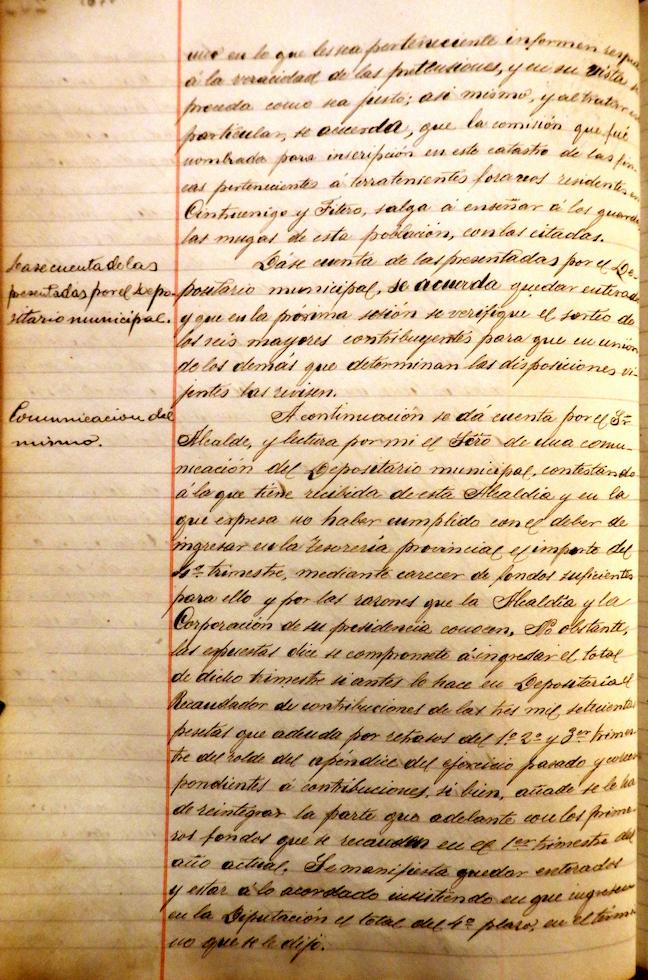 uno en lo que les sea perteneciente informen respec
á la veracidad de las pretensiones, y en su vista se
proceda como sea justo; asi mismo, y al tratar
particular, se acuerda, que la comisión que fué
nombrada para inscripción en este catastro de las fin-
cas pertenecientes á terratenientes foraneos residentes en
Cintruenigo y Fitero, salga á enseñar á los guardas
las mugas de esta población, con las citadas.
Dase cuenta de las
presentadas por el Depo-
sitario municipal.
Dáse cuenta de las presentadas por el De-
positario municipal, se acuerda quedar enterados
y que en la próxima sesión se verifique el sorteo de
los seis mayores contribuyentes para que en unión
de los demás que determinan las disposiciones vi-
jentes las revisen.
Comunicacion del
mismo.
A continuación se dá cuenta por el Sr.
Alcalde, y lectura por mi el Srio de una comu-
nicación del Depositario municipal, contestando
á la que tiene recibida de esta Alcaldia y en la
que expresa no haber cumplido con el deber de
ingresar en la Tesorería provincial el importe del
4º trimestre, mediante carecer de fondos suficientes
para ello y por las razones que la Alcaldía y la
Corporación de su presidencia conocen, No obstante,
las expuestas dice se compromete á ingresar el total
de dicho trimestre si antes lo hace en Depositaria el
Recaudador de contribuciones de las tres mil setecientas
pesetas que adeuda por retrasos del 1º 2º y 3er trimes-
tre del rolde del apéndice del ejercicio pasado y corres-
pondientes á contribuciones, si bien, añade se le ha
de reintegrar la parte que adelante con los prime-
ros fondos que se recauden en el 1er trimestre del
año actual. Se manifiesta quedar enterados
y estar á lo acordado insistiendo en que ingrese
en la Diputación el total del 4º plazo, en el térmi-
no que se le dijo.